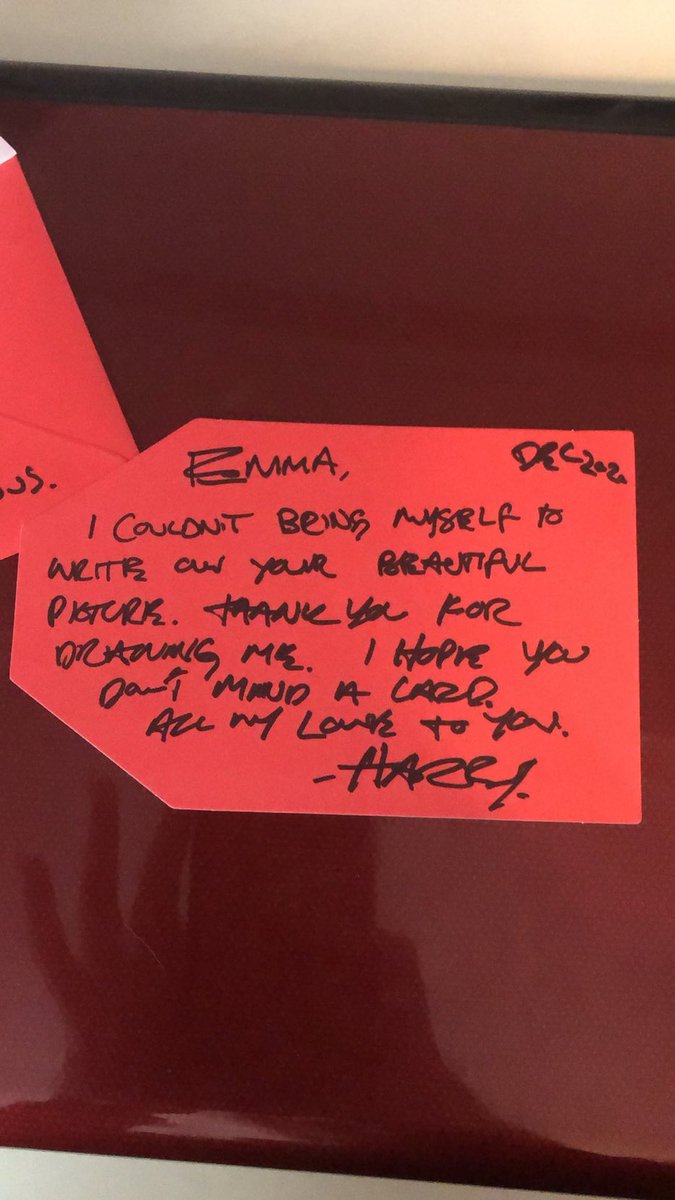 EMMA, DEC 2020
I COULDN'T BRING MYSELF TO
WRITE ON YOUR BEAUTIFUL
PICTURE. THANK YOU FOR
DRAWING ME. I HOPE YOU
DON'T MIND A CARD.
ALL MY LOVE TO YOU.
-HARRY.